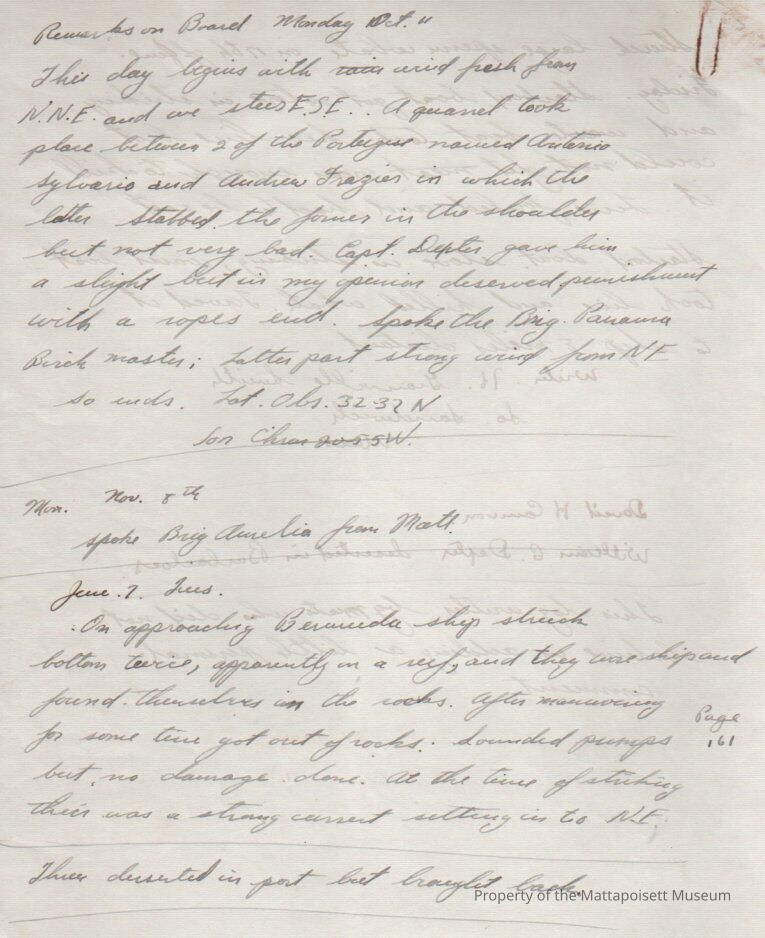 Remarks on Board Monday Oct. 11
This day begins with rain wind fresh from
N.N.E. and we steer E.S.E. . A quarrel took
place between 2 of the Portugese named Antonio
Sylvario and Andrew Frazier in which the
latter stabbed the former in the shoulder
but not very bad. Capt. Dexter gave him
a slight but in my opinion deserved punishment
with a ropes end. Spoke the Brig. Panama
Birch master; Latter part strong wind from N.E
so ends. Lat. Obs. 32-32 N
Lon Chro 20-55 W.
Mon. Nov. 8th
spoke Brig Aurelia from Matt.
June. 7. Tues.
On approaching Bermuda ship struck
bottom twice, apparently on a reef, and they wore ship and
found themselves in the rocks. After maneuvering
for some time got out of rocks. Sounded pumps
Page
161
but no damage done. At the time of striking
their was a strong current setting in to N.E.
Three deserted in port but brought back.
Property of the Mattapoisett Museum